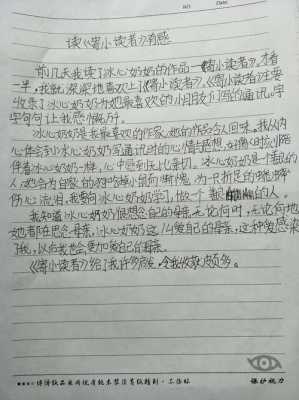 NO.
Date.
读《寄小读者》有感
前几天我读了冰心奶奶的作品—《寄小读者》，才看
一半，我就深深地喜欢上了《寄小读者》。《寄小读者》主要
收录了冰心奶奶为她最喜欢的小朋友们写的通讯。字
字句句让我感慨万分。
冰心奶奶是我最喜欢的作家，她的作品令人回味。我从内
心体会到了冰心奶奶写通讯时的心情与思想，好像时刻都陪
伴着冰心奶奶一样，心中感到无比亲切。冰心奶奶是个善良的
人，她会为自家的狗吃掉小鼠而惭愧，为一只折足的蟋蟀
伤心流泪，我要向冰心奶奶学习，做一个善良的人。
我知道冰心奶奶很想念自己的母亲，无论何时，无论何地
她都在思念母亲，冰心奶奶这么爱自己的母亲，这种爱感染
了我，以后我也会更加爱自己的母亲。
《寄小读者》给了我许多启发，令我收获颇多。
保护视力